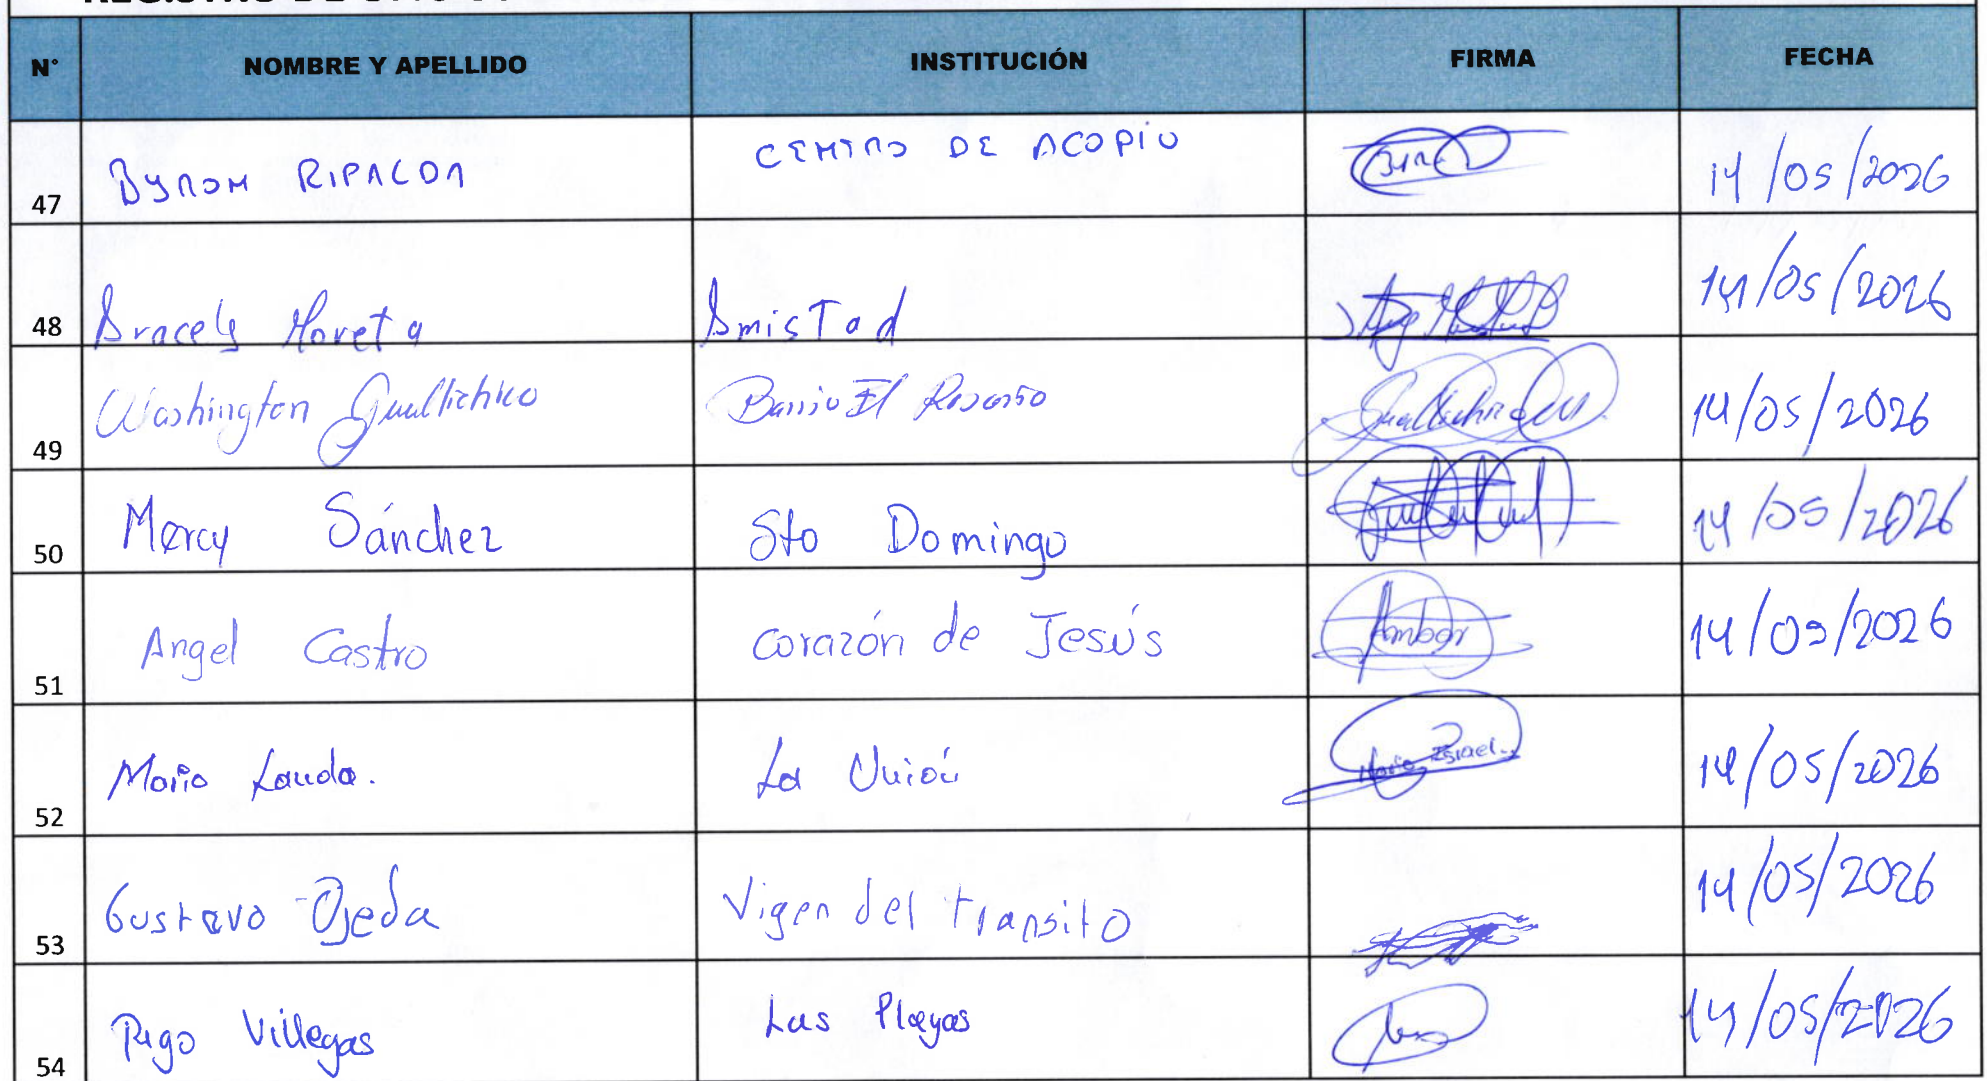 N° NOMBRE Y APELLIDO INSTITUCIÓN FIRMA FECHA
47 BYRON RIPALDA CENTRO DE ACOPIO 14/05/2026
48 Aracely Moreta Amistad 14/05/2026
49 Washington Guallichico Barrio El Rosario 14/05/2026
50 Mercy Sánchez Sto Domingo 14/05/2026
51 Angel Castro corazón de Jesús 14/05/2026
52 Mario Landa. La Unión Mario Israel 14/05/2026
53 Gustavo Ojeda Vigen del transito 14/05/2026
54 Rigo Villegas Las Playas 14/05/2026